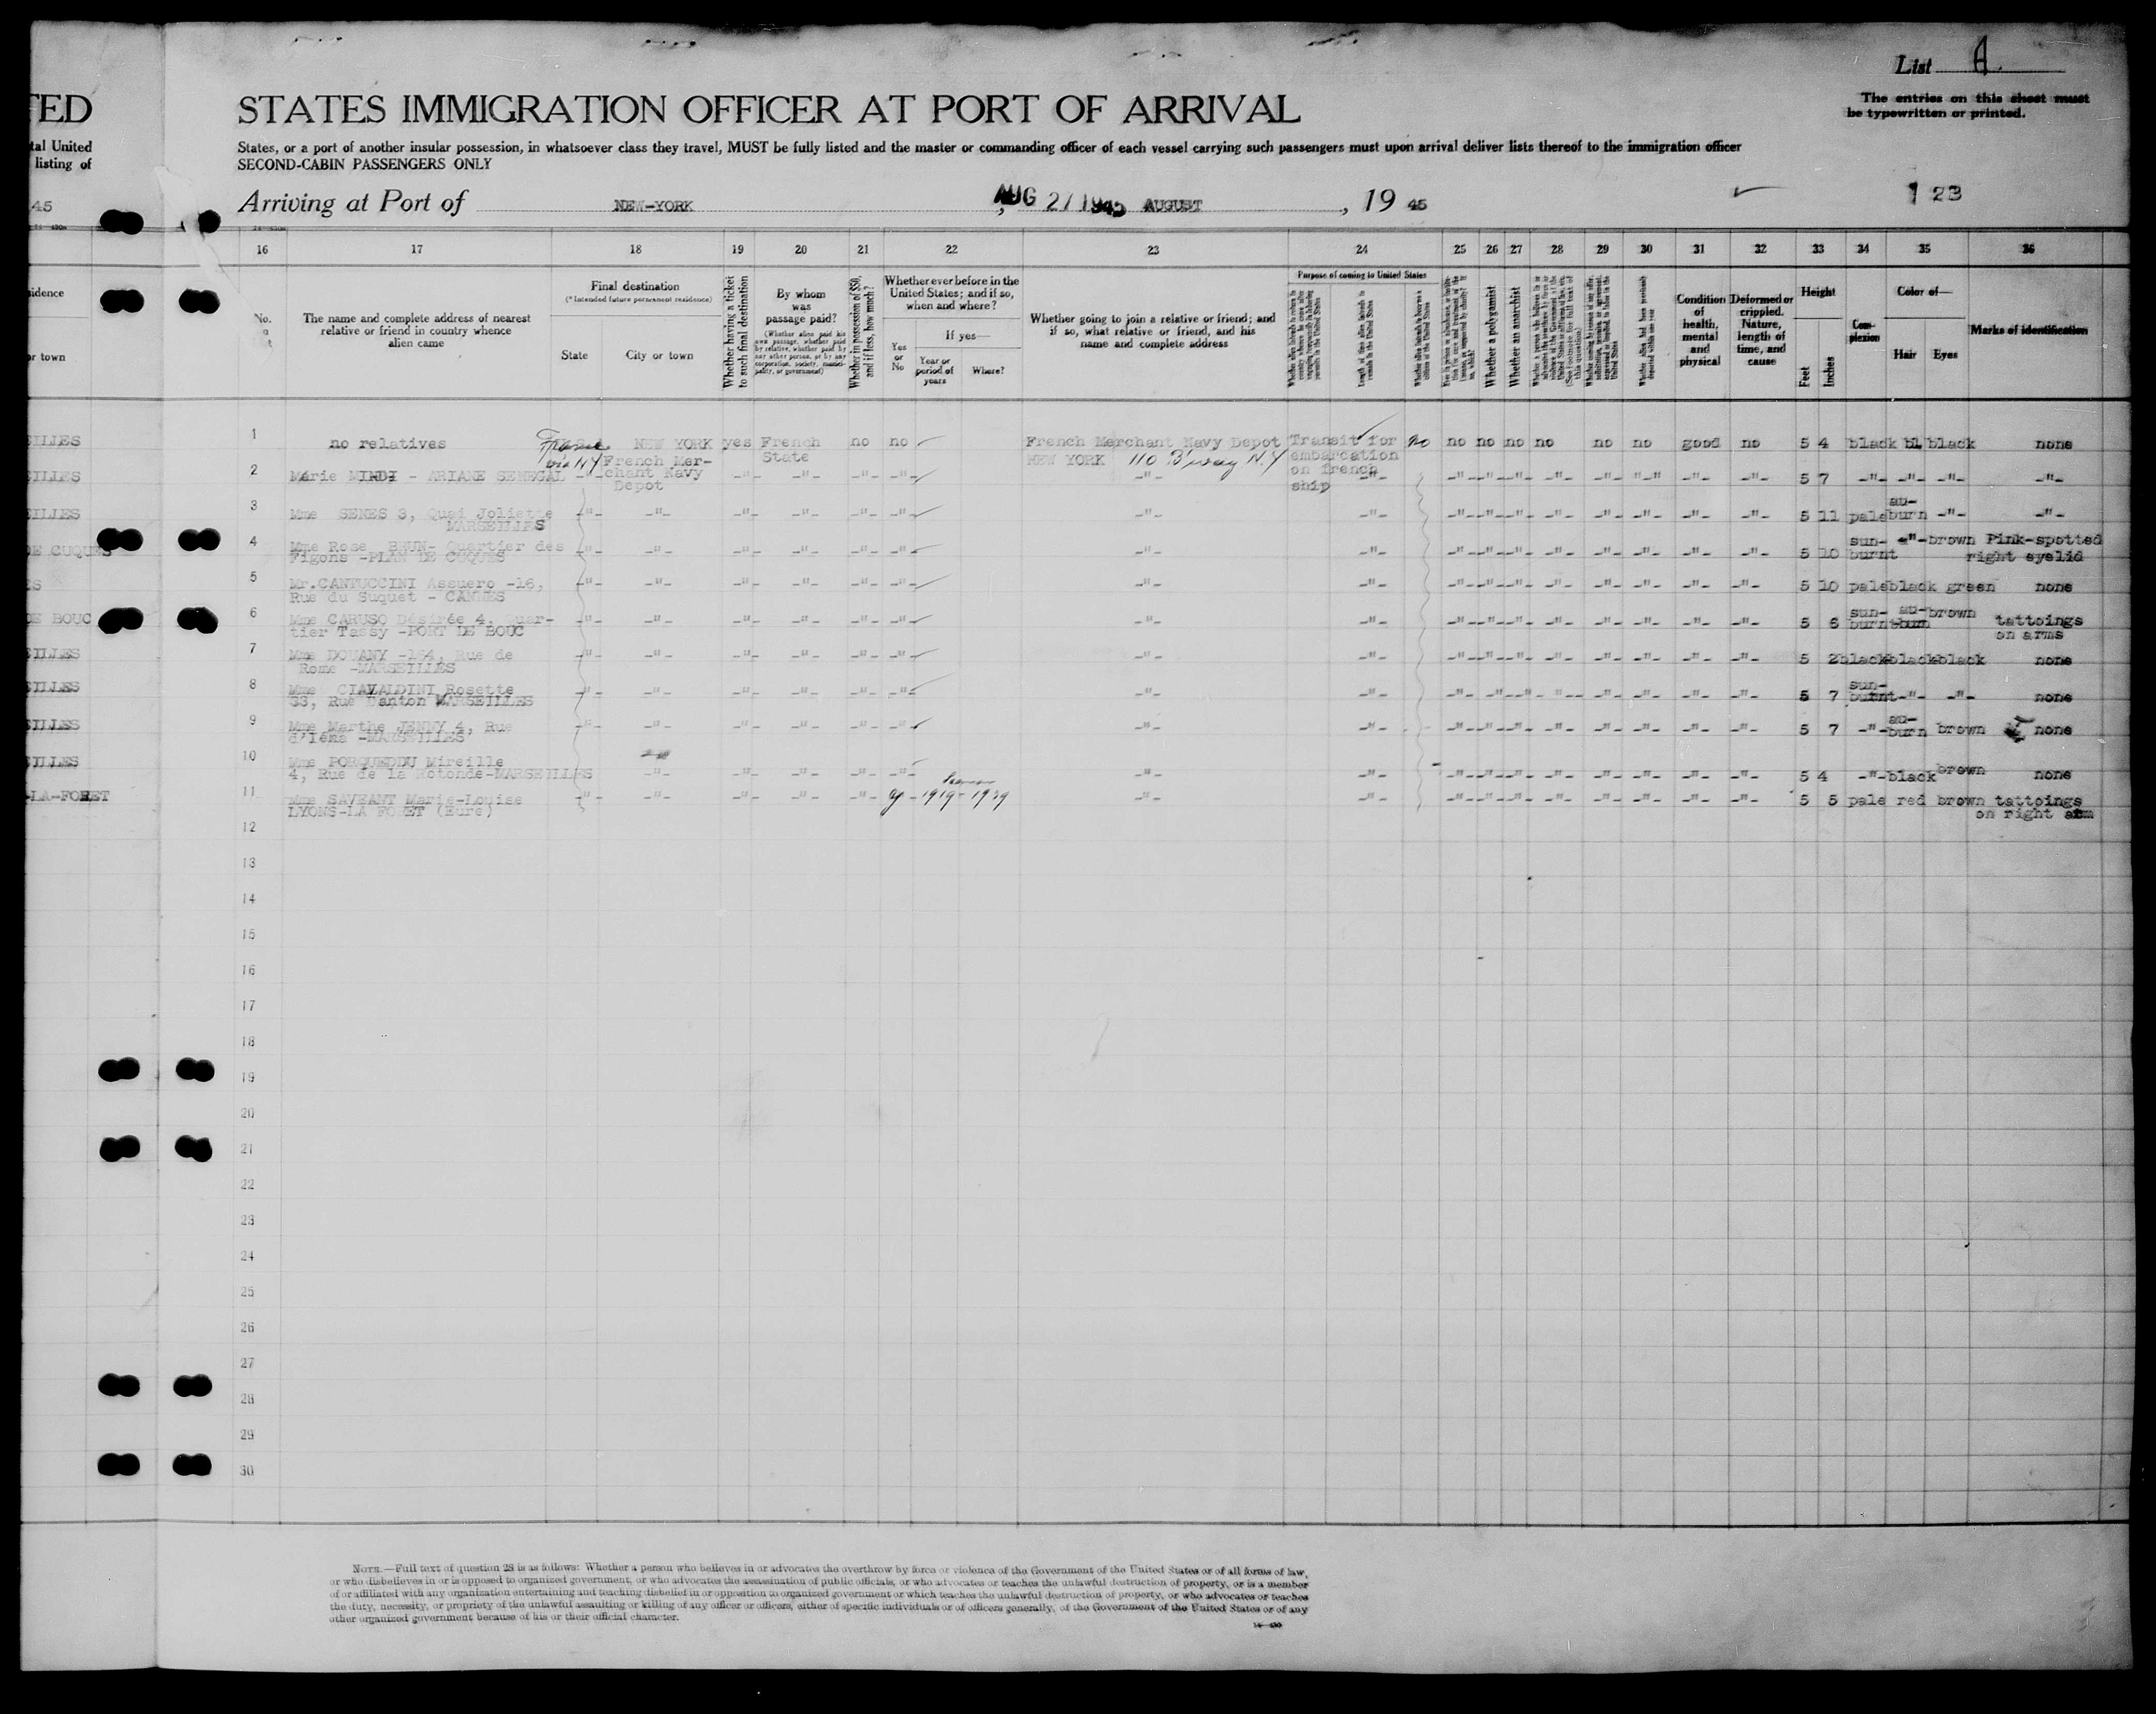 List A
TED
STATES IMMIGRATION OFFICER AT PORT OF ARRIVAL
The entries on this sheet must
be typewritten or printed.
tal United
listing of
States, or a port of another insular possession, in whatsoever class they travel, MUST be fully listed and the master or commanding officer of each vessel carrying such passengers must upon arrival deliver lists thereof to the immigration officer
SECOND-CABIN PASSENGERS ONLY
45
Arriving at Port of NEW-YORK, AUG 27 1945 AUGUST, 19 45
123
16 17 18 19 20 21 22 23 24 25 26 27 28 29 30 31 32 33 34 35 36
idence
or town
No.
The name and complete address of nearest
relative or friend in country whence
alien came
Final destination
(* Intended future permanent residence)
State
City or town
Whether having a ticket
to such final destination
By whom
was
passage paid?
(Whether alien paid his
own passage, whether paid
by relative, whether paid by
any other person, or by any
corporation, society, munici-
pality, or government)
Whether in possession of $50,
and if less, how much?
Whether ever before in the
United States; and if so,
when and where?
Yes
or
No
If yes—
Year or
period of
years
Where?
Whether going to join a relative or friend; and
if so, what relative or friend, and his
name and complete address
Purpose of coming to United States
Length of time alien intends to
remain in the United States
Whether a polygamist
Whether an anarchist
Condition
of
health,
mental
and
physical
Deformed or
crippled.
Nature,
length of
time, and
cause
Height
Feet
Inches
Com-
plexion
Color of—
Hair
Eyes
Marks of identification
ILLES 1 no relatives France U.S.A. NEW YORK yes French no no French Merchant Navy Depot Transit for no no no no no no no good no 5 4 black bl black none
via NY French Mer- State NEW YORK 110 B'way N.Y embarcation
ILLES 2 Marie MINDI - ARIANE SENEGAL -"- chant Navy -"- -"- -"- -"- -"- on french -"- -"- -"- -"- -"- -"- -"- -"- -"- 5 7 -"- -"- -"- -"-
Depot ship
ILLES 3 Mme SENES 3, Quai Joliette -"- -"- -"- -"- -"- -"- -"- -"- -"- -"- -"- -"- -"- -"- -"- -"- 5 11 pale au-
burn -"- -"-
MARSEILLES
DE CUQUES 4 Mme Rose BRUN- Quartier des -"- -"- -"- -"- -"- -"- -"- -"- -"- -"- -"- -"- -"- -"- -"- -"- 5 10 sun-
burnt -"- brown Pink-spotted
right eyelid
Figons -PLAN DE CUQUES
ES 5 Mr.CANTUCCINI Assuero -16, -"- -"- -"- -"- -"- -"- -"- -"- -"- -"- -"- -"- -"- -"- -"- -"- 5 10 pale black green none
Rue du Suquet - CANNES
DE BOUC 6 Mme CARUSO Désirée 4, Quar- -"- -"- -"- -"- -"- -"- -"- -"- -"- -"- -"- -"- -"- -"- -"- -"- 5 6 sun-
burnt au-
burn brown tattoings
on arms
tier Tassy -PORT DE BOUC
ILLES 7 Mme DOUANY -164, Rue de -"- -"- -"- -"- -"- -"- -"- -"- -"- -"- -"- -"- -"- -"- -"- -"- 5 2 black black black none
Rome -MARSEILLES
ILLES 8 Mme CIAVALDINI Rosette -"- -"- -"- -"- -"- -"- -"- -"- -"- -"- -"- -"- -"- -"- -"- -"- 5 7 sun-
burnt -"- -"- none
33, Rue Danton MARSEILLES
ILLES 9 Mme Marthe JENNY 4, Rue -"- -"- -"- -"- -"- -"- -"- -"- -"- -"- -"- -"- -"- -"- -"- -"- 5 7 -"- au-
burn brown none
d'Iéna -MARSEILLES
ILLES 10 Mme PORQUEDDU Mireille
4, Rue de la Rotonde-MARSEILLES -"- -"- -"- -"- -"- -"- -"- -"- -"- -"- -"- -"- -"- -"- -"- 5 4 -"- black brown none
-LA-FORET 11 Mme SAVEANT Marie-Louise -"- -"- -"- -"- -"- 1919-1939 -"- -"- -"- -"- -"- -"- -"- -"- -"- -"- 5 5 pale red brown tattoings
on right arm
LYONS-LA FORET (Eure)
12
13
14
15
16
17
18
19
20
21
22
23
24
25
26
27
28
29
30
NOTE.—Full text of question 28 is as follows: Whether a person who believes in or advocates the overthrow by force or violence of the Government of the United States or of all forms of law,
or who disbelieves in or is opposed to organized government, or who advocates the assassination of public officials, or who advocates or teaches the unlawful destruction of property, or is a member
of or affiliated with any organization entertaining and teaching disbelief in or opposition to organized government or which teaches the unlawful destruction of property, or who advocates or teaches
the duty, necessity, or propriety of the unlawful assaulting or killing of any officer or officers, either of specific individuals or of officers generally, of the Government of the United States or of any
other organized government because of his or their official character.